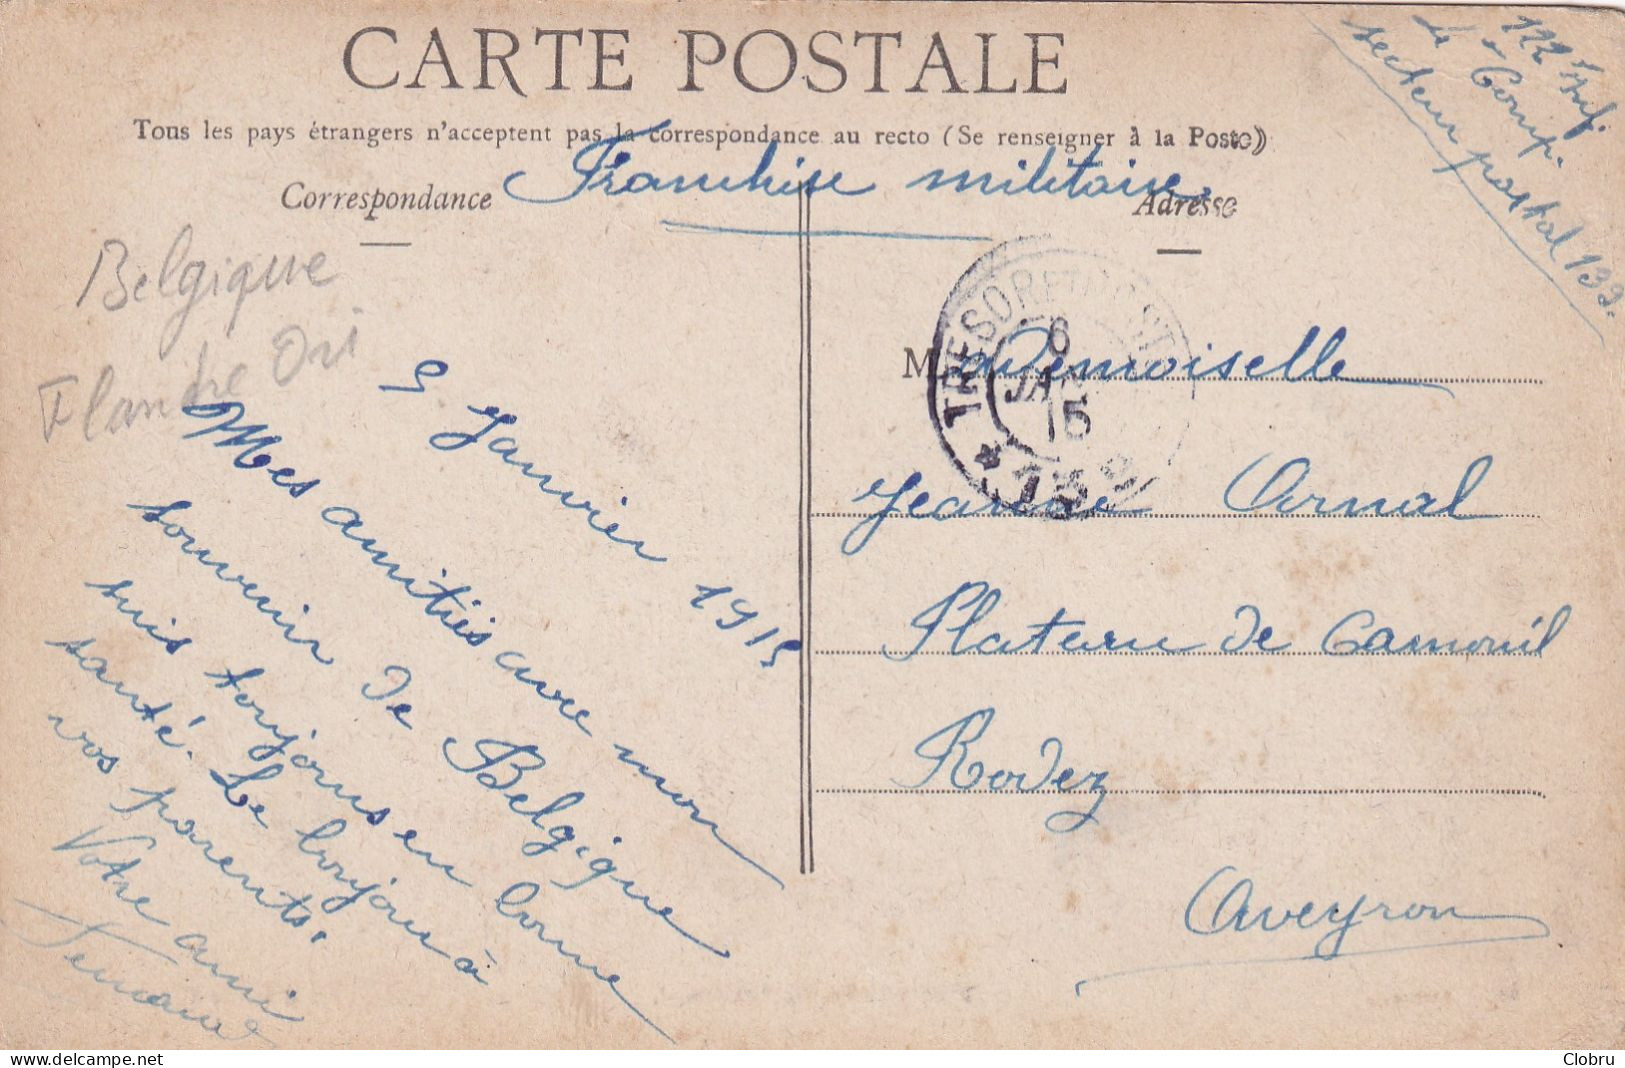 CARTE POSTALE
Tous les pays étrangers n'acceptent pas la correspondance au recto (Se renseigner à la Poste)
Franchise militaire
Correspondance
Adresse
122 Inf.
Comp.
secteur postal 139.
Belgique
Flandre Ori
5 Janvier 1915
Mes amitiés avec mon
souvenir de Belgique
suis toujours en bonne
santé. Le bonjour à
vos parents.
Votre ami
Fernand
TRESOR ET POSTES
6
JAN
15
* 139 *
Mademoiselle
Jeanne Arnal
Plateau de Camonil
Rodez
Aveyron
Clobru
delcampe.net